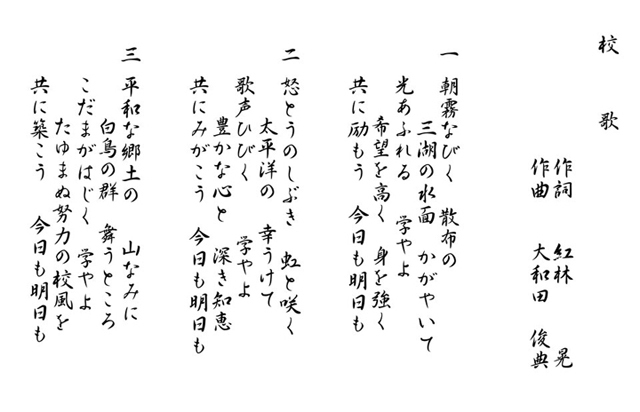 校 歌
作詞 紅林 晃
作曲 大和田 俊典
一 朝霧なびく 散布の
三湖の水面 かがやいて
光あふれる 学やよ
希望を高く 身を強く
共に励もう 今日も明日も
二 怒とうのしぶき 虹と咲く
太平洋の 幸うけて
歌声ひびく 学やよ
豊かな心と 深き知恵
共にみがこう 今日も明日も
三 平和な郷土の 山なみに
白鳥の群 舞うところ
こだまがはじく 学やよ
たゆまぬ努力の校風を
共に築こう 今日も明日も